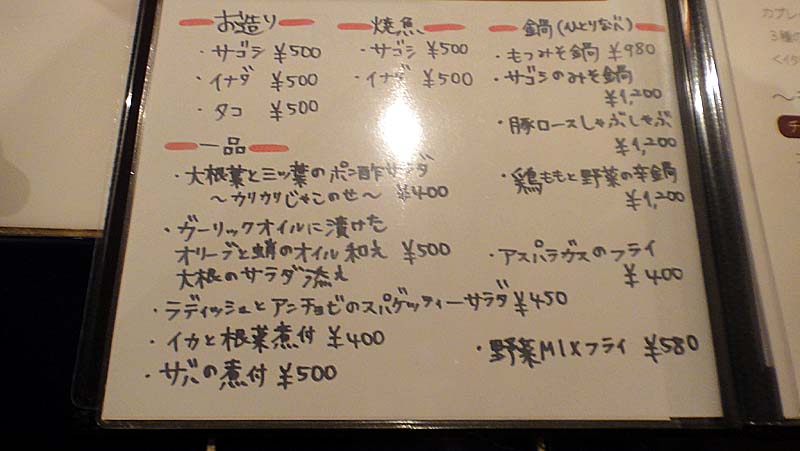 お造り
・サゴシ ¥500
・イナダ ¥500
・タコ ¥500
焼魚
・サゴシ ¥500
・イナダ ¥500
一品
・大根葉と三ッ葉のポン酢サラダ
〜カリカリじゃこのせ〜 ¥400
・ガーリックオイルに漬けた
オリーブと蛸のオイル和え ¥500
大根のサラダ添え
・ラディッシュとアンチョビのスパゲッティーサラダ ¥450
・イカと根菜煮付 ¥400
・サバの煮付 ¥500
鍋(ひとりなべ)
・もつみそ鍋 ¥980
・サゴシのみそ鍋
¥1,200
・豚ロースしゃぶしゃぶ
¥1,200
・鶏ももと野菜の辛鍋
¥1,200
・アスパラガスのフライ
¥400
・野菜MIXフライ ¥580
カプレ
3種の